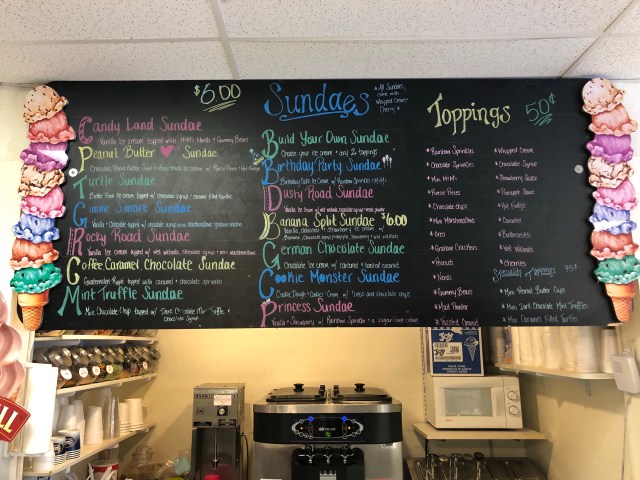 $6.00
Sundaes
*All Sundaes
come with
Whipped Cream
Cherry*
Toppings 50¢
Candy Land Sundae
Vanilla Ice cream topped with M&M's, Nerds & Gummy Bears
Peanut Butter Sundae
Turtle Sundae
Gimme Smore Sundae
Rocky Road Sundae
Coffee Caramel Chocolate Sundae
Mint Truffle Sundae
Mint Chocolate Chip topped w/
Chocolate Syrup
Build Your Own Sundae
Create your ice cream + any 2 toppings
Birthday Party Sundae
Birthday Cake Ice Cream w/ Rainbow Sprinkles + M&M's
Dusty Road Sundae
Banana Split Sundae $6.00
German Chocolate Sundae
Chocolate Ice cream w/ caramel + toasted coconut
Cookie Monster Sundae
Cookie Dough + Cookies + Cream w/ Oreos and chocolate chips
Princess Sundae
*Rainbow Sprinkles
*Chocolate Sprinkles
*Mini M&M's
*Reese Pieces
*Chocolate chips
*Mini Marshmallows
*Oreo
*Graham Crackers
*Peanuts
*Nerds
*Gummy Bears
*Malt Powder
*Toasted Coconut
*Whipped Cream
*Chocolate Syrup
*Strawberry Sauce
*Pineapple Sauce
*Hot Fudge
*Caramel
*Butterscotch
*Wet Walnuts
*Cherries
Speciality Toppings 75¢
*Mini Peanut Butter Cups
*Mini Dark Chocolate Mint Truffles
*Mini Caramel Filled Turtles
JOY